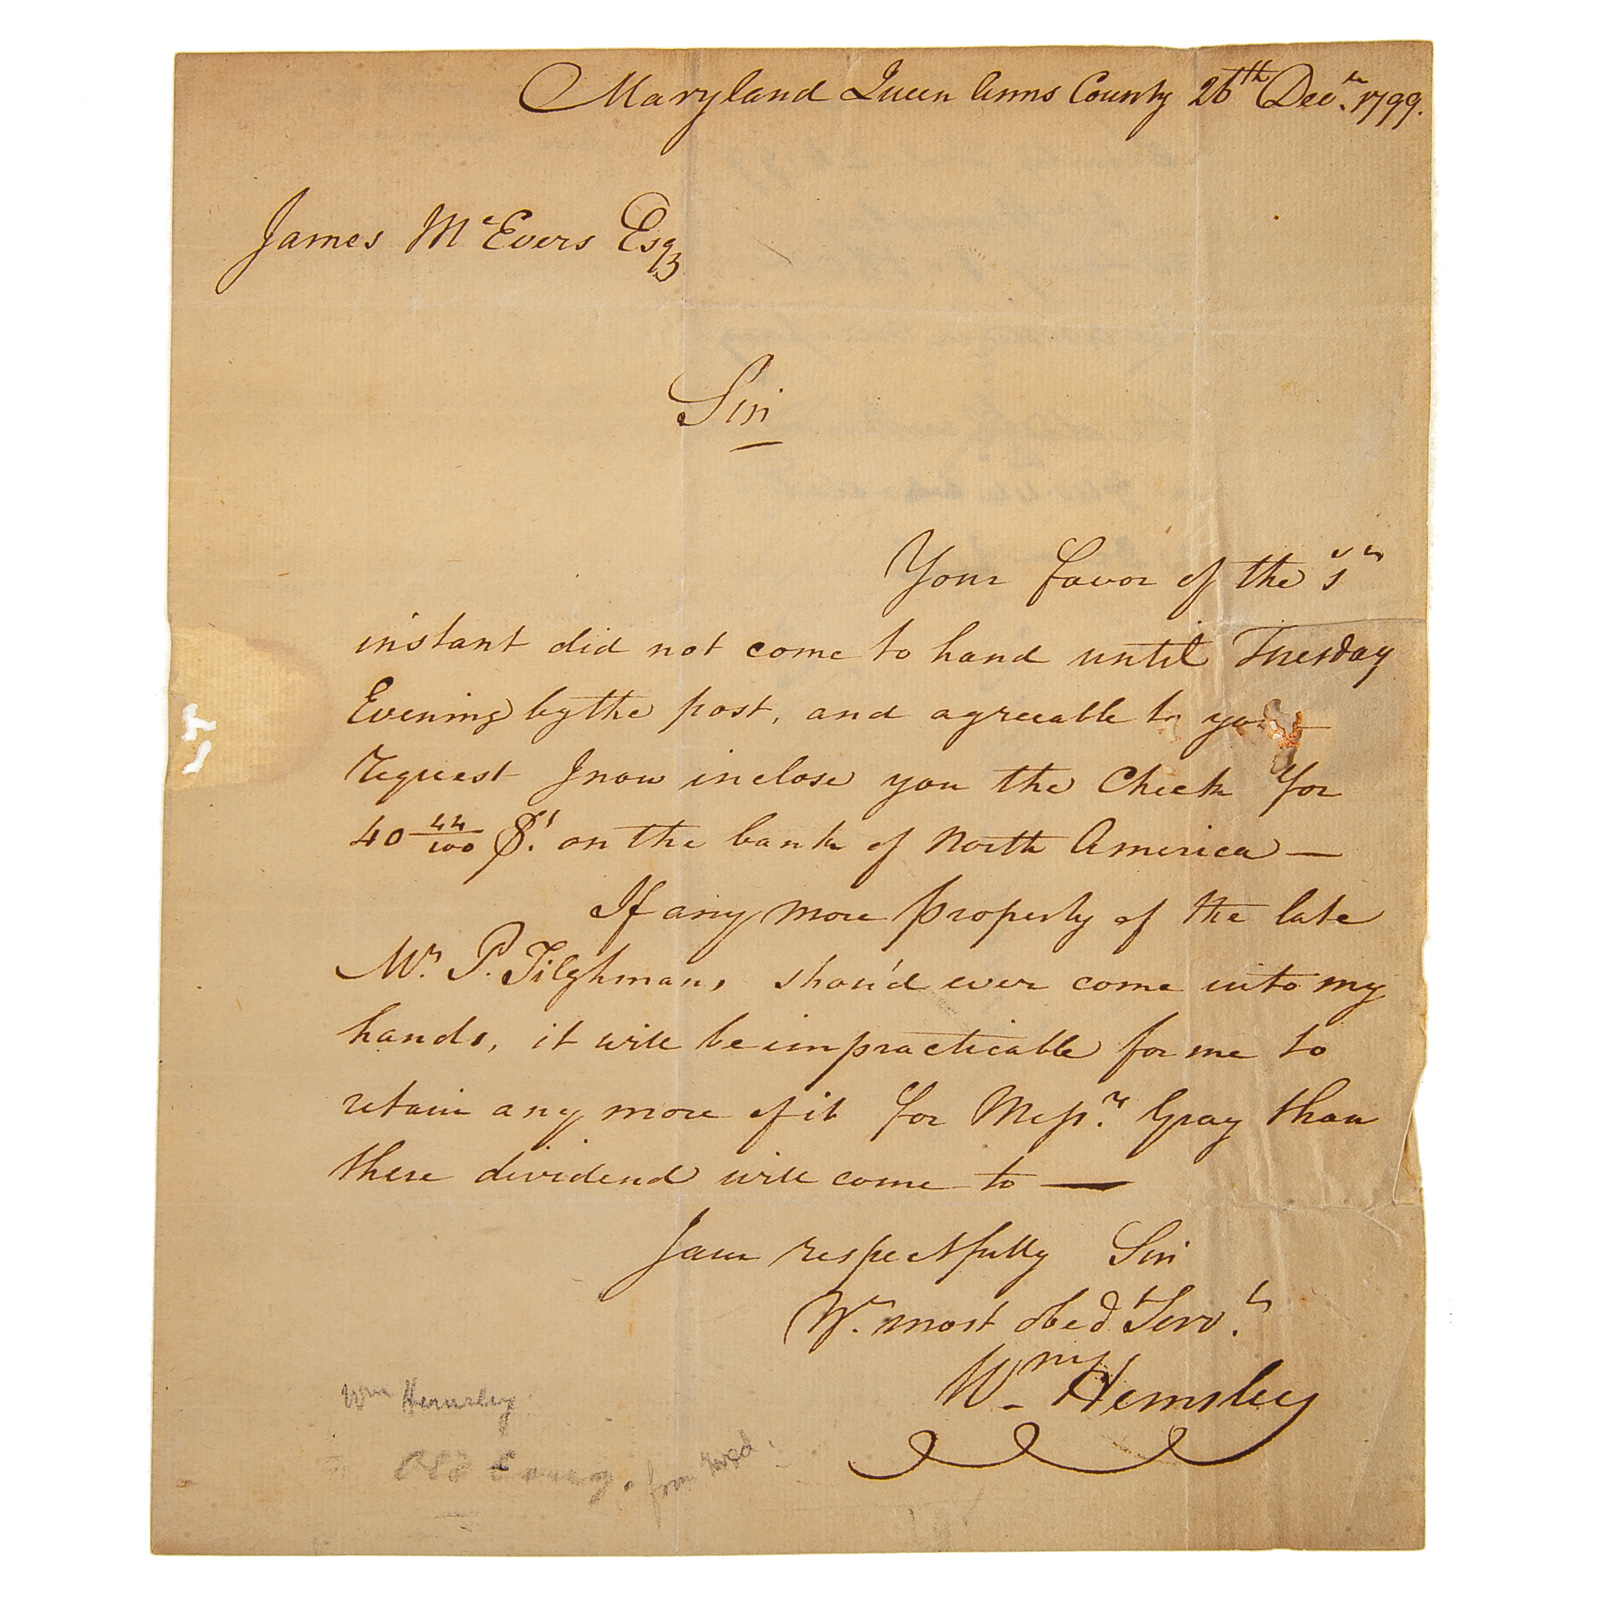 Maryland Queen Anns County 26th Decr. 1799.
James McEvers Esqr
Sir
Your favor of the
instant did not come to hand until Tuesday
Evening by the post, and agreeable to your
request I now inclose you the Check for
40 44/100 $s. on the bank of North America —
If any more property of the late
Mr. P. Tilghmans, shou'd ever come into my
hands, it will be impracticable for me to
retain any more of it for Messrs. Gray than
there dividend will come to —
I am respectfully Sir
Yr. most obedt. Servt.
Wm. Hemsley
Wm Hemsley
Old Cong. from Maryd.